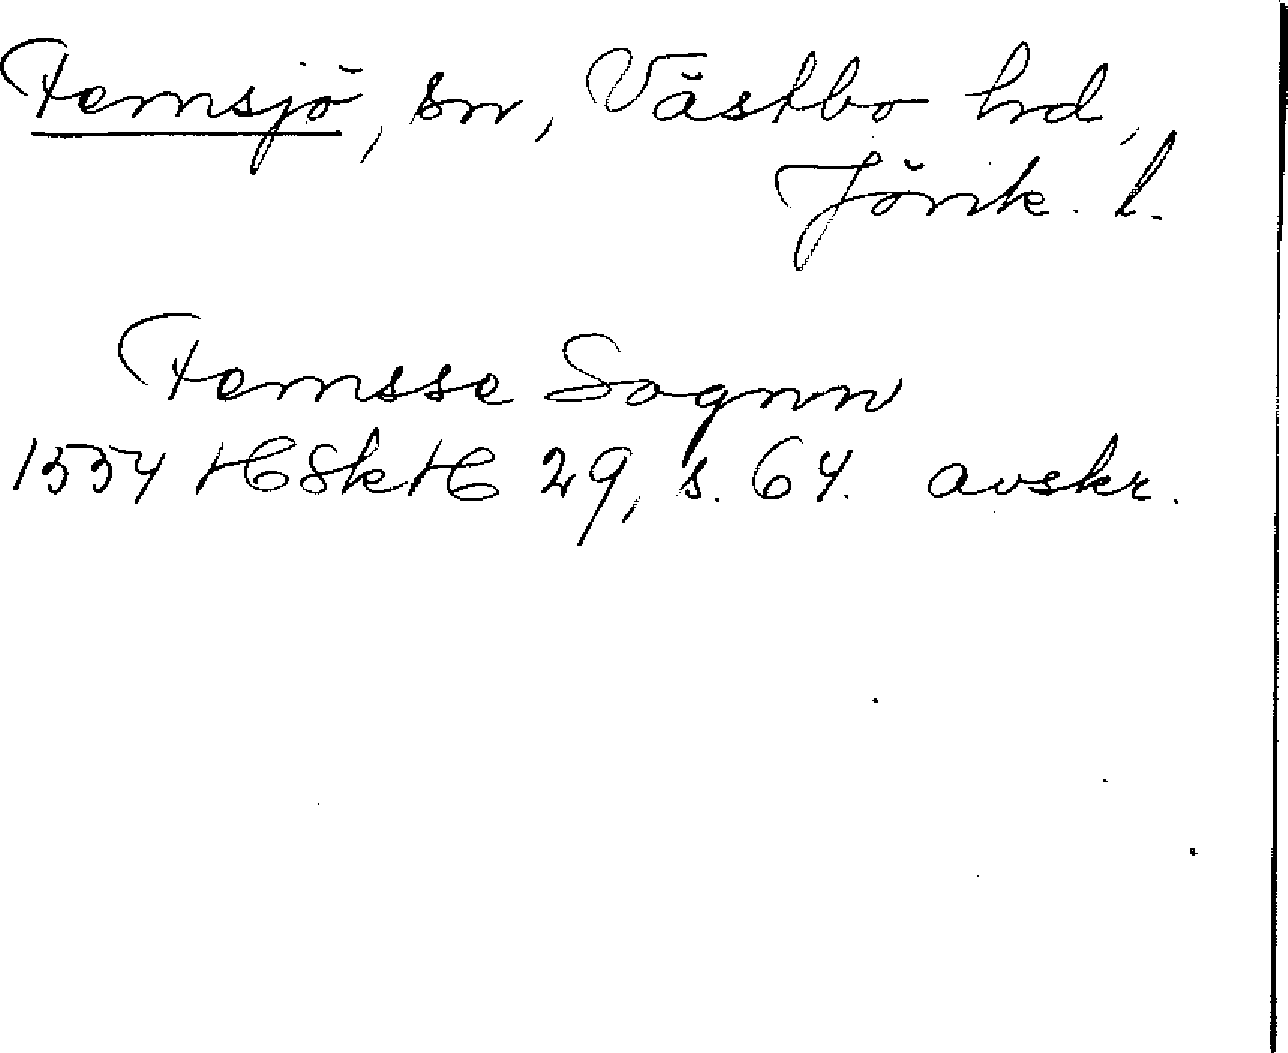 Femsjö, sn, Västbo hrd,
Jönk. l.
Femsse Sognn
1554 HSkH 29, s. 64. avskr.